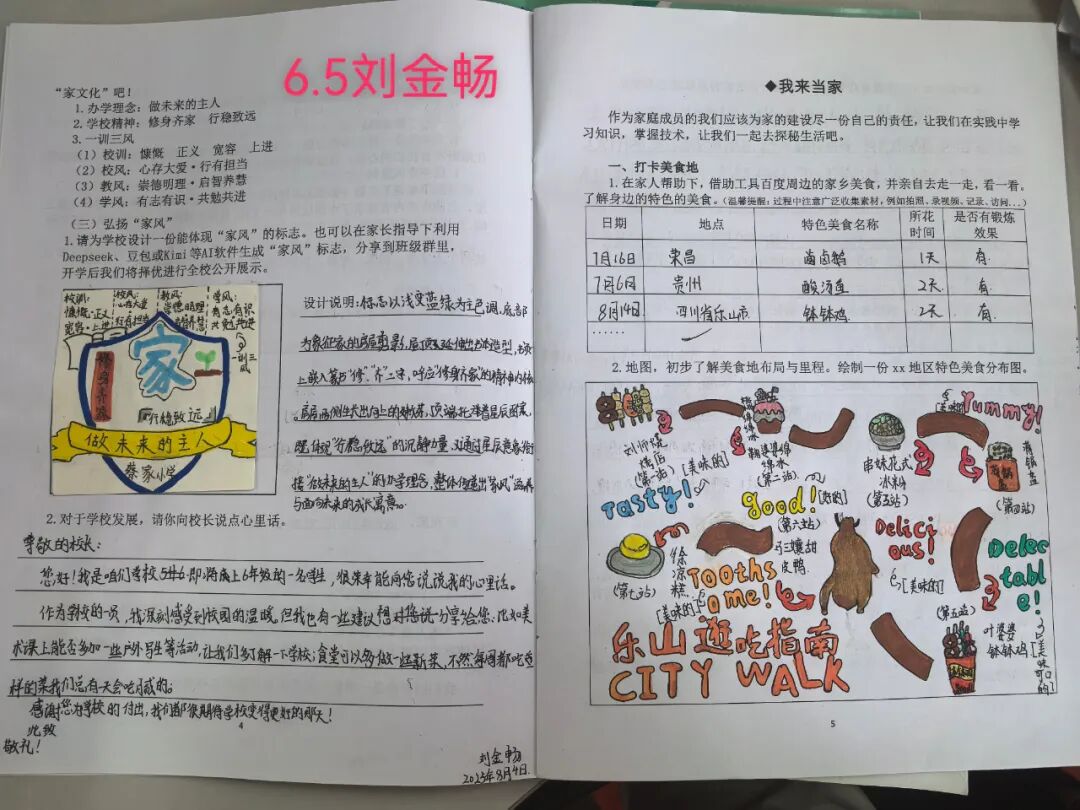 6.5刘金畅
“家文化”吧！
1.办学理念：做未来的主人
2.学校精神：修身齐家 行稳致远
3.一训三风
（1）校训：慷慨 正义 宽容 上进
（2）校风：心存大爱·行有担当
（3）教风：崇德明理·启智养慧
（4）学风：有志有识·共勉共进
（三）弘扬“家风”
1.请为学校设计一份能体现“家风”的标志。也可以在家长指导下利用
Deepseek、豆包或Kimi等AI软件生成“家风”标志，分享到班级群里，
开学后我们将择优进行全校公开展示。
校训：
慷慨·正义
宽容·上进
校风：
心存大爱
行有担当
教风：
崇德明理
学风：
有志有识
共勉共进
一训三风
家
修身齐家
行稳致远
做未来的主人
蔡家小学
设计说明：标志以浅变蓝绿为主色调，底部
为象征家的房屋剪影，屋顶
上嵌入篆书“修”“齐”二字，呼应“修身齐家”的精神内核
。房屋两侧生长出向上的嫩芽，顶端托
“行稳致远”的沉静力量，又通过星辰意象衔
接“做未来的主人”的办学理念，整体传递出“家风”
与面向未来的成长寓意。
2.对于学校发展，请你向校长说点心里话。
尊敬的校长：
您好！我是咱们学校即将成上6年级的一名学生，很荣幸能向您说说我的心里话。
作为学校的一员，我深刻感受到校园的温暖。但我也有一些建议想分享给您：比如美
术课上能否多加一些户外写生等活动，让我们多了解一下学校；食堂可以多做一些新菜，不然每周都吃这
样的菜我们总有天会吃腻的。
感谢您为学校的付出，我们都很期待学校变得更好的那天！
此致
敬礼！
刘金畅
2025年8月4日
4
◆我来当家
作为家庭成员的我们应该为家的建设尽一份自己的责任，让我们在实践中学
习知识，掌握技术，让我们一起去探秘生活吧。
一、打卡美食地
1.在家人帮助下，借助工具百度周边的家乡美食，并亲自去走一走，看一看。
了解身边的特色的美食。（温馨提醒：过程中注意广泛收集素材，例如拍照、录视频、记录、访问...）
日期 地点 特色美食名称 所花时间 是否有锻炼效果
7月16日 荣昌 卤鹅 1天 有
7月6日 贵州 酸汤鱼 2天 有
8月14日 四川省乐山市 钵钵鸡 2天 有
······
2.地图，初步了解美食地布局与里程。绘制一份xx地区特色美食分布图。
烤店
（第一站）
[美味的]
婆婆
绵绵冰
（第二站）
串妹花式
冰料
（第五站）
Yummy!
（第四站）
Tasty!
good!
[好的]
（第六站）
甜
皮鸭
Delicious!
[美味的]
Delectable!
[美味可口的]
凉糕
（第七站）
Toothsome!
[美味的]
（第五站）
叶婆婆
钵钵鸡
乐山逛吃指南
CITY WALK
5